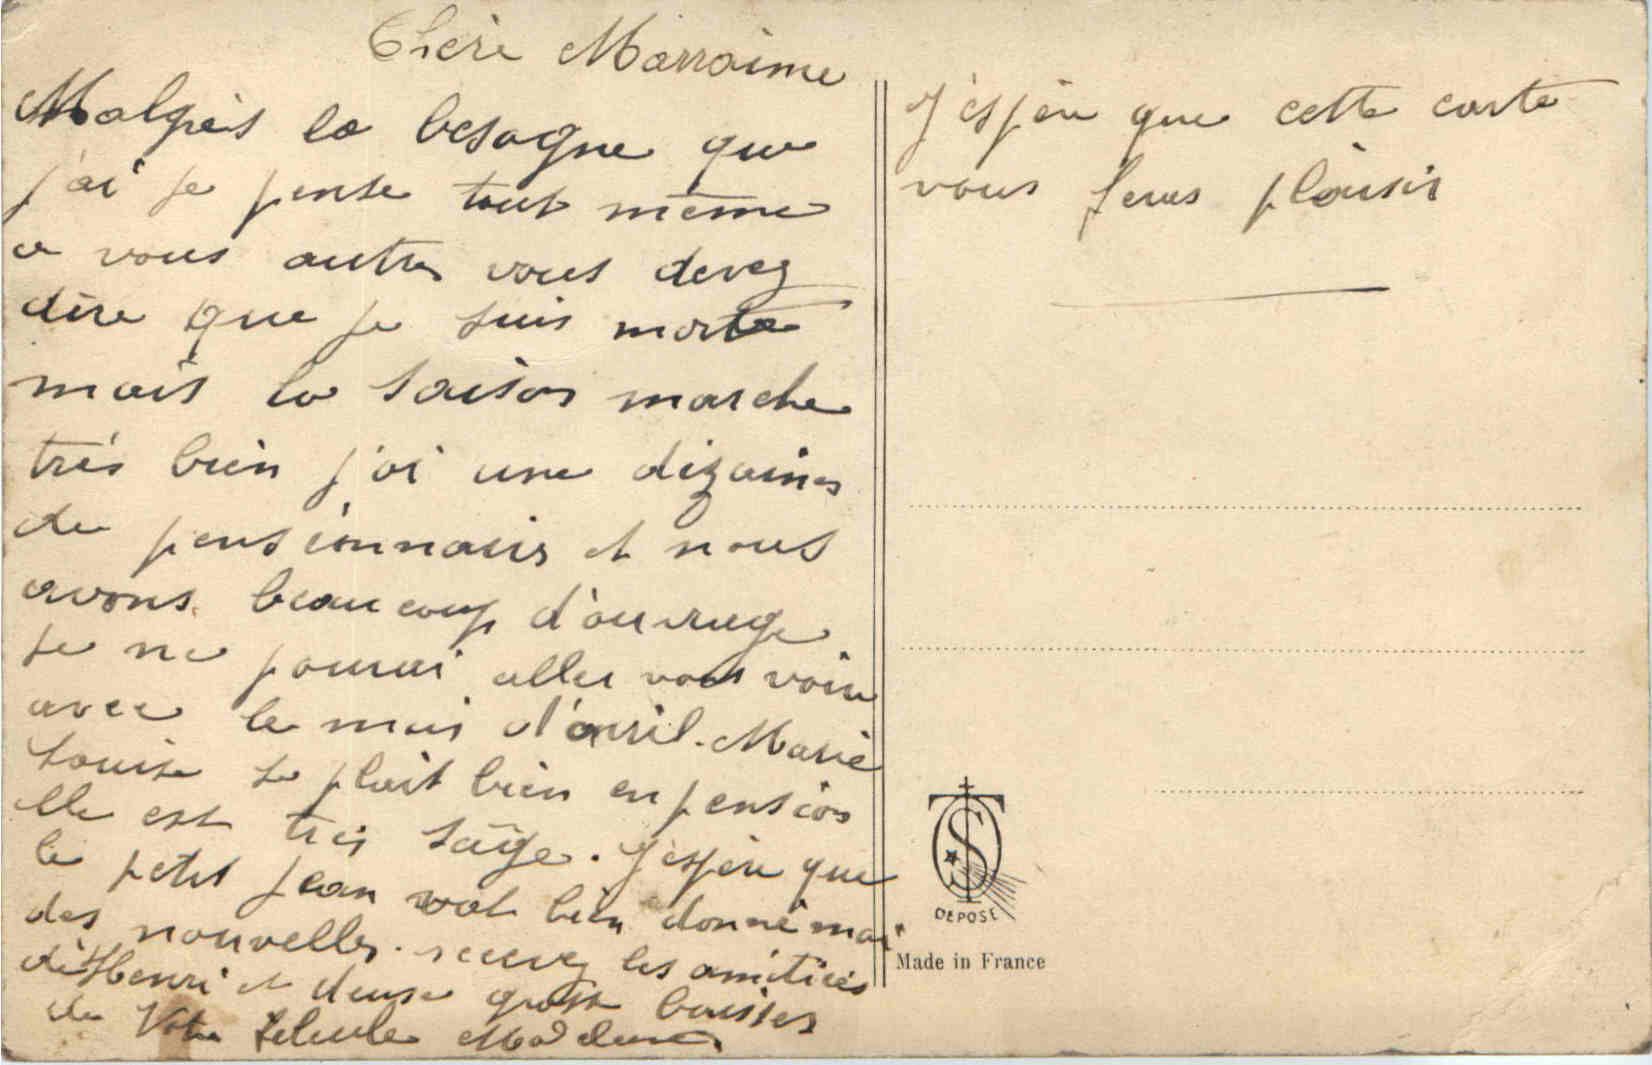 Chère Marraime
Malgrès la besogne que
j'ai je pense tout même
a vous autres vous devez
dire que je suis morte
mais la saison marche
très bien j'ai une dizaines
de pensionnaires et nous
avons beaucoup d'ouvrage
je ne pourai aller vous voir
avec le mois d'avril. Marie
Louise se plait bien en pension
elle est très sage. J'espère que
le petit Jean vat bien donné moi
des nouvelles. recevez les amitiés
de Henri et deuse grosse baisses
de Votre Madeleine
J'espère que cette carte
vous feras plaisir
DEPOSÉ
Made in France